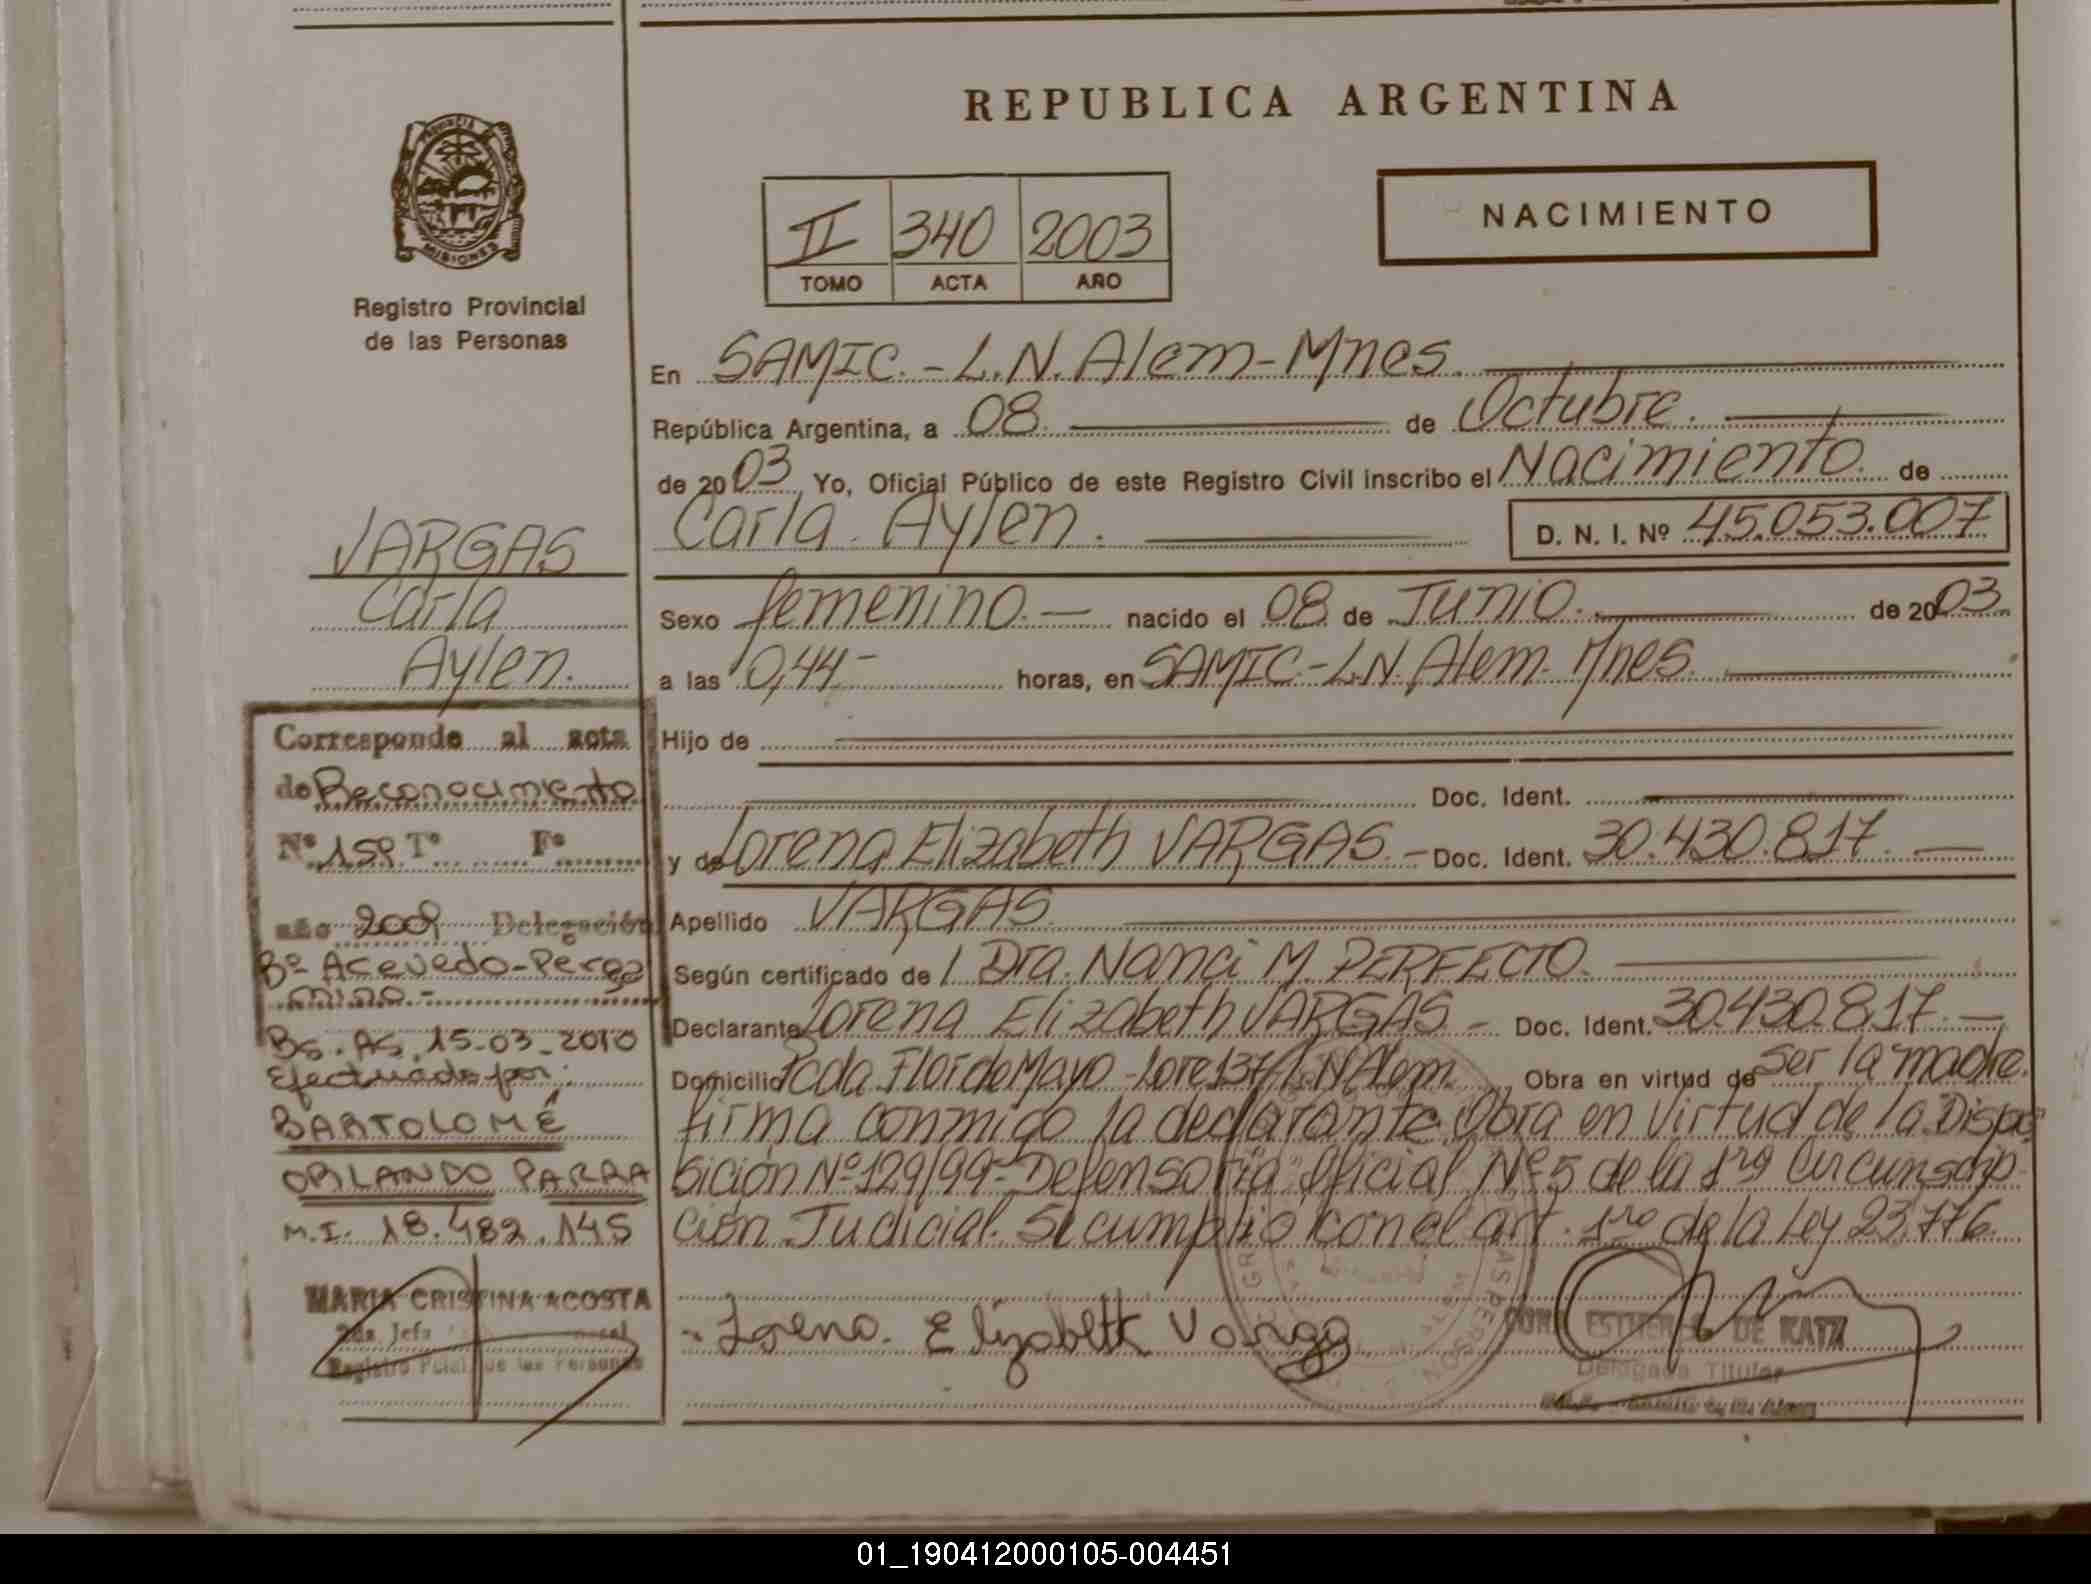 REPUBLICA ARGENTINA
PROVINCIA DE
MISIONES
Registro Provincial
de las Personas
II 340 2003
TOMO ACTA AÑO
NACIMIENTO
En SAMIC.-L.N.Alem-Mnes.
República Argentina, a 08. de Octubre.
de 2003 Yo, Oficial Público de este Registro Civil inscribo el Nacimiento. de
Carla Aylen. D. N. I. Nº 45.053.007
Sexo femenino.- nacido el 08 de Junio. de 2003.
a las 0,44- horas, en SAMIC-L.N.Alem-Mnes.
Hijo de
Doc. Ident.
y de Lorena Elizabeth VARGAS.- Doc. Ident. 30.430.817.
Apellido VARGAS
Según certificado de / Dra. Nanci M. PERFECTO.
Declarante Lorena Elizabeth VARGAS - Doc. Ident. 30.430.817.-
Domicilio Pcda Flor de Mayo-Lote137/L.N Alem. Obra en virtud de ser la madre.
firma conmigo la declarante. Obra en virtud de la Dispo-
sición Nº129/99-Defensoría Oficial Nº5 de la 1ra Circunscrip-
ción Judicial. Se cumplio con el art. 1ro de la Ley 23.776.
Lorena. Elizabeth Varga
ESTHER DE KATZ
Delegada Titular
VARGAS
Carla
Aylen.
Corresponde al acta
de Reconocimiento
Nº 159 Tº Fº
año 2009 Delegación
Bº Acevedo-Perga
mino.-
Bs. As, 15-03-2010
Efectuado por:
BARTOLOMÉ
ORLANDO PARRA
M.I. 18.482.145
MARIA CRISTINA ACOSTA
2da. Jefa
Registro Pcial. de las Personas
01_190412000105-004451